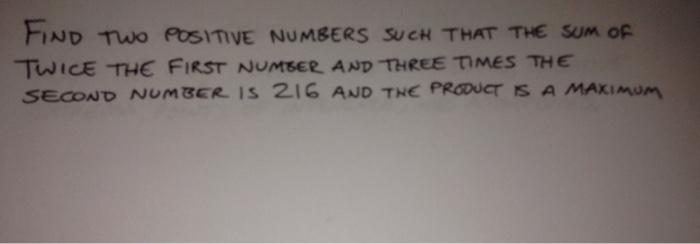 FIND TWO POSITIVE NUMBERS SUCH THAT THE SUM OF
TWICE THE FIRST NUMBER AND THREE TIMES THE
SECOND NUMBER IS 216 AND THE PRODUCT IS A MAXIMUM